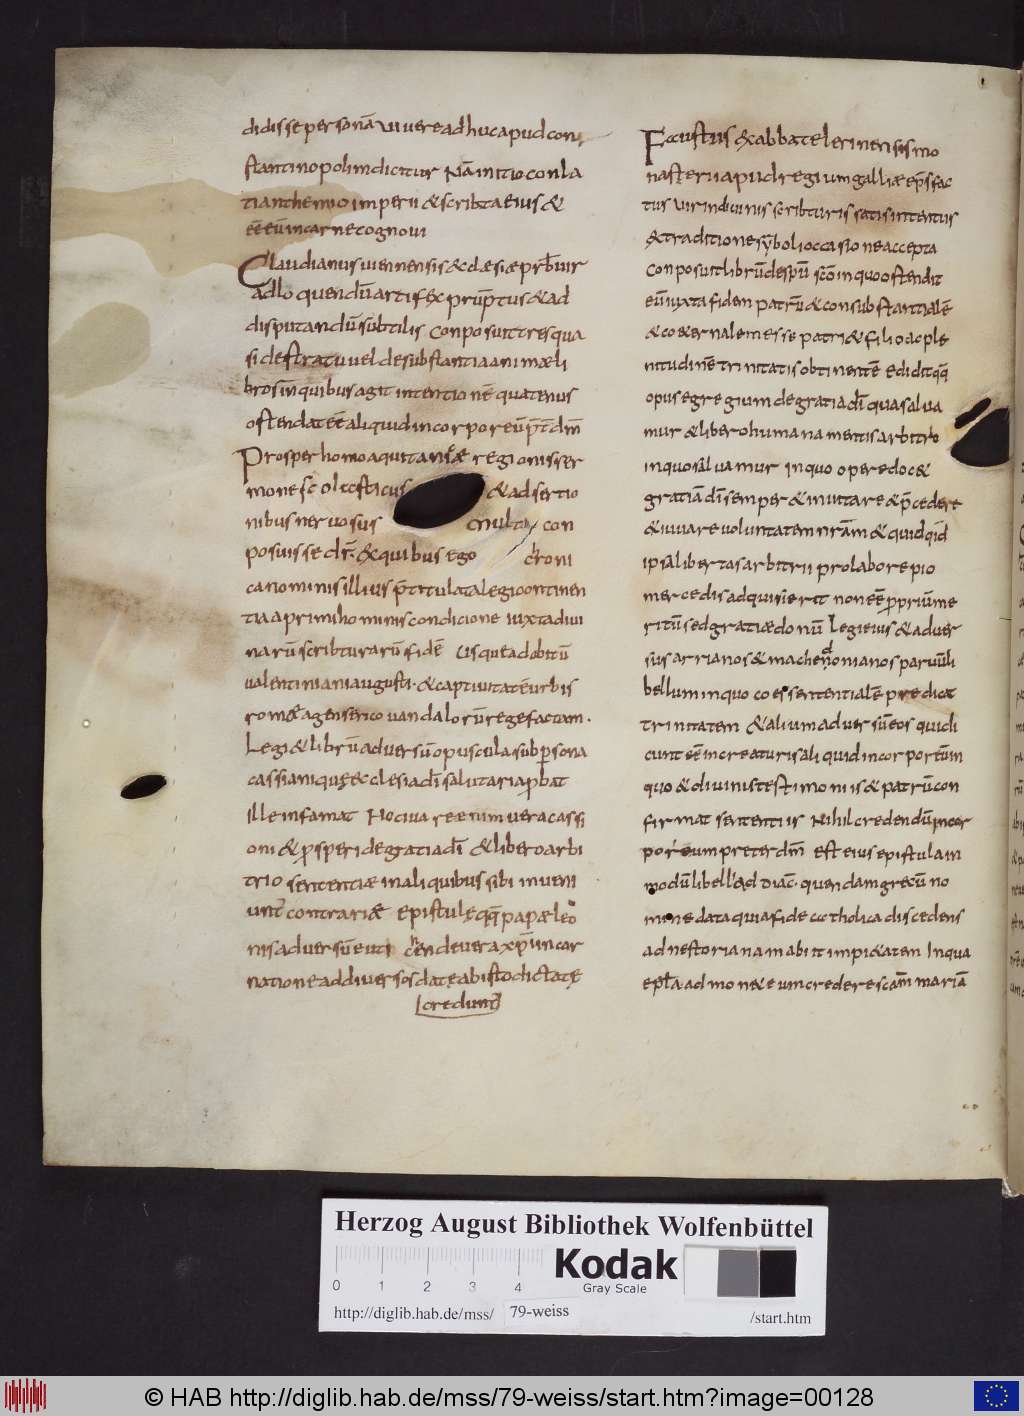 didisse personā vivere adhuc apud con
stantinopolim dicitur Nā initio con la
tianthemio imperii & scribta eius &
eē eū in carne cognovi
Claudianus viennensis &cclæsiæ prb̄ vir
adlo quendū artifex prūptus & ad
disputandū subtilis conposuit tres qua
si de stratu vel de substantia animæ li
bros in̄ quibus agit intentionē quatenus
ostendat eē aliquid incorporeū pr̄t dm̄
Prosper homo aquitanicæ regionis ser
mone scolasticus & adsertio
nibus nervosus multa con
posuisse dr̄. &x quibus ego chroni
ca nominis illius p̄titulata legi continen
tia a primi hominis condicione iuxta divi
narū scribturarū fidē usque ad obitū
valentiniani augusti. & captivitatē urbis
romæ a genserico vandalorū rege factam.
Legi & librū adversū opuscula sub persona
cassiani quę &cclesia dī salutaria p̄bat
ille infamat Nociva re enim vera cassi
oni & prosperi de gratia dī & libero arbi
trio sententiæ in aliquibus sibi inveni
unt contrariæ epistulę qq papæ leo
nis adversū euticen de vera xp̄i incar
natione ad diversos datę ab isto dictatę
credunt
Faustus &x abbate lerinensis mo
nasterii apud regium galliæ ep̄s fac
tus vir in divinis scribturis satis intentus
& traditione symboli occasione accepta
conposuit librū de spū scō in quo ostendit
eū iuxta fidem patrū & consubstantialē
& co&ernalem esse patri & filio ac ple
nitudinē trinitatis obtinentē edidit qq
opus egregium de gratia dī qua salva
mur & libero humanæ mentis arbitrio
in quo salvamur in quo opere doc&
gratiā dī semper & invitare & p̄cedere
& iuvare voluntatem nrām & quidqid
ipsa libertas arbitrii pro labore pio
mercedis adquisierit non eē p̄prium me
ritū sed gratiæ donū Legi eius & adver
sus arrianos & machedonianos parvū li
bellum in quo coessentialē predicat
trinitatem & alium adversū eos qui di
cunt eē in creaturis aliquid incorporeum
quo & divinis testimoniis & patrū con
firmat sententiis Nihil credendū incor
poreum preter dm̄ est eius epistula in
modū libelli ad diac. quendam grecū no
mine data qui a fide catholica discedens
ad nestorianam abiit impi&atem In qua
epl̄a admon& eum credere scam̄ mariā
Herzog August Bibliothek Wolfenbüttel
0 1 2 3 4
Kodak
Gray Scale
http://diglib.hab.de/mss/ 79-weiss /start.htm
© HAB http://diglib.hab.de/mss/79-weiss/start.htm?image=00128